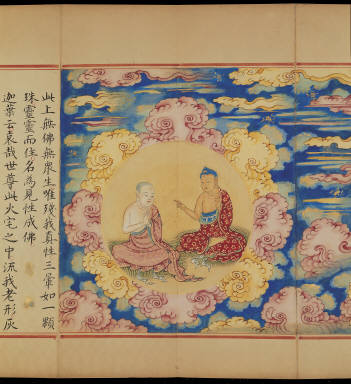 此上無佛無衆生唯殘我真性三彙如一顆
珠靈靈而住名為見性成佛
迦葉云哀哉世尊此火宅之中流我老形灰